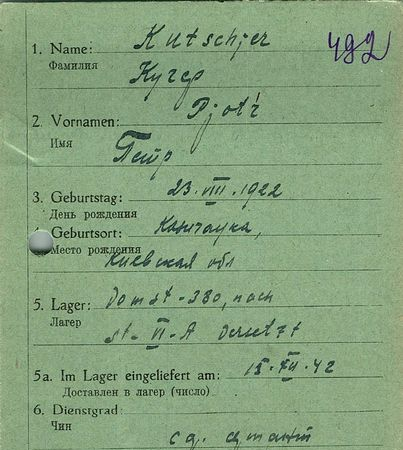 1. Name: Kutschjer 492
Фамилия Кучер
2. Vornamen: Pjotr
Имя Петр
3. Geburtstag: 23.VIII.1922
День рождения
Geburtsort:
Место рождения
Киевская обл
5. Lager: nach
Лагер st-VI-A versetzt
5a. Im Lager eingeliefert am: 15.XII.42
Доставлен в лагер (число)
6. Dienstgrad:
Чин